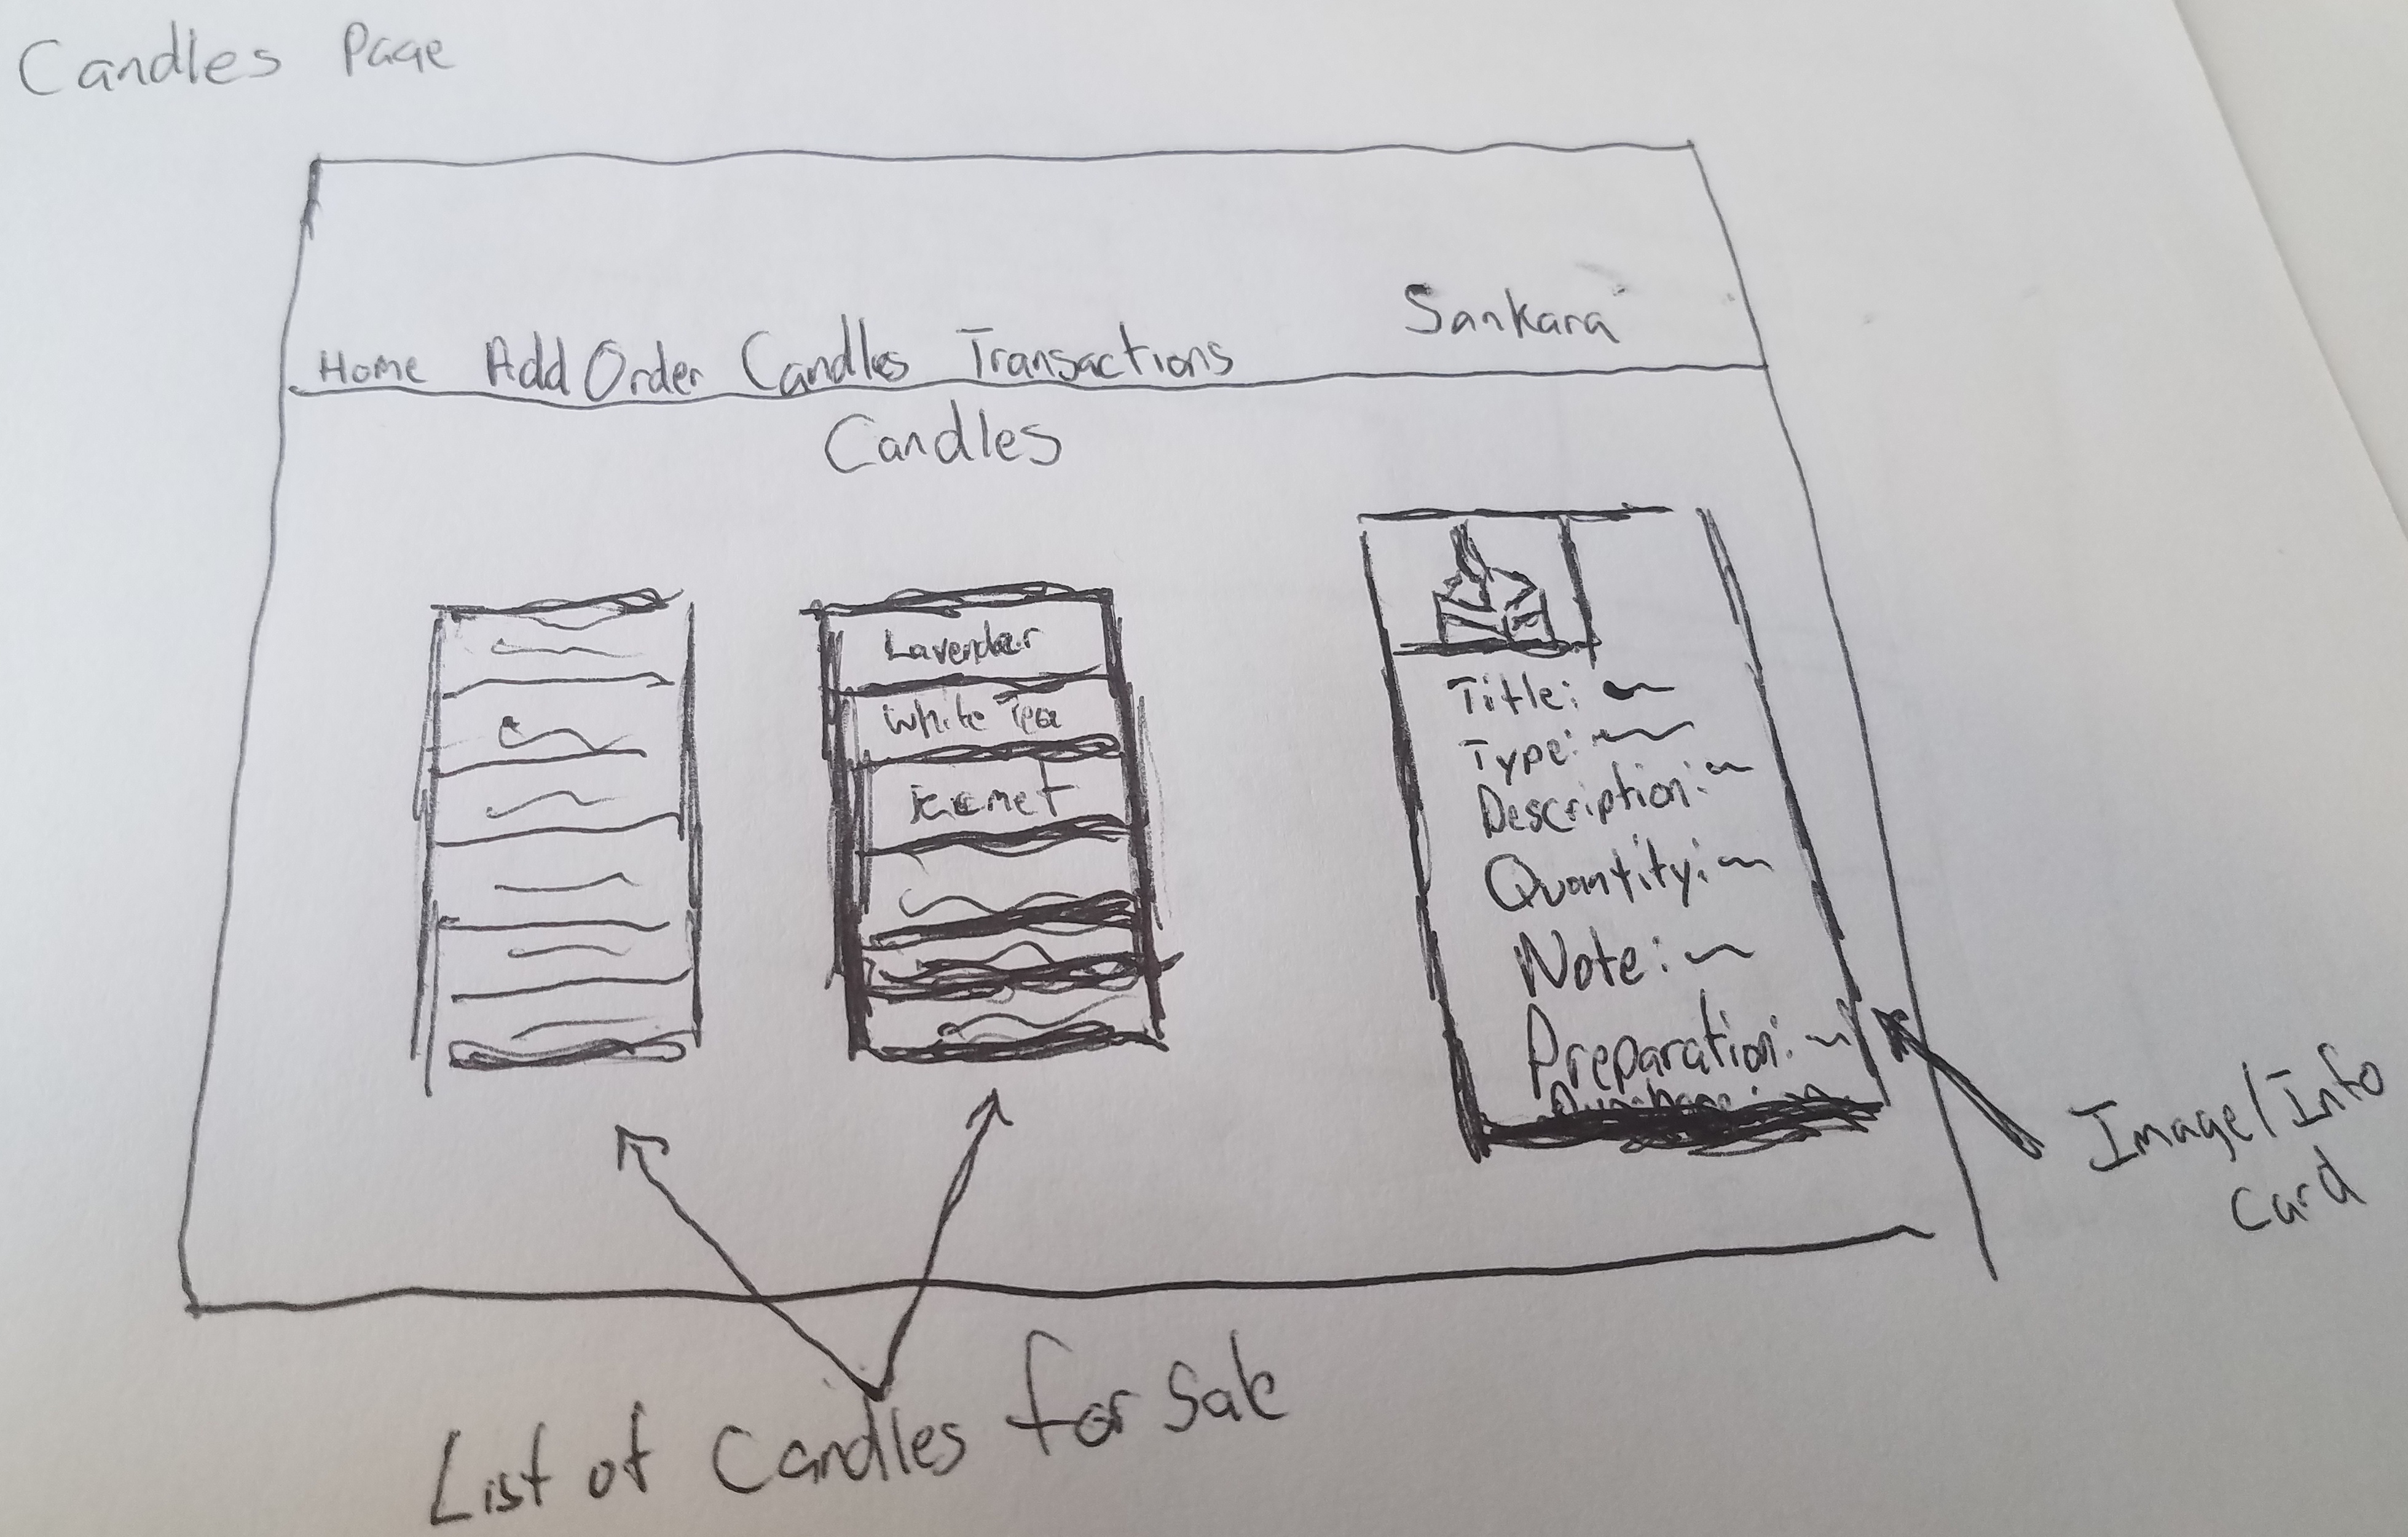 Candles Page
Home Add Order Candles Transactions Sankara
Candles
Lavender
White Tea
Title:
Type:
Description:
Quantity:
Note:
Preparation:
Image/Info
Card
List of Candles for Sale